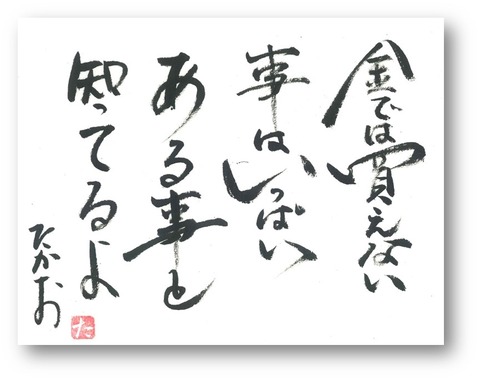 金では買えない
事はいっぱい
ある事を
知ってるよ
たかお
た